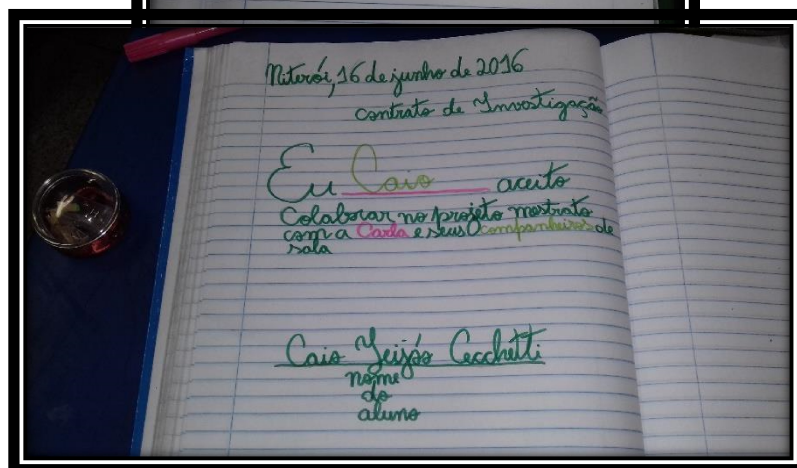 Niterói, 16 de junho de 2016
contrato de Investigação
Eu Caio aceito
Colaborar no projeto mestrato
com a Carla e seus companheiros de
sala
Caio Feijós Cecchetti
nome
do
aluno